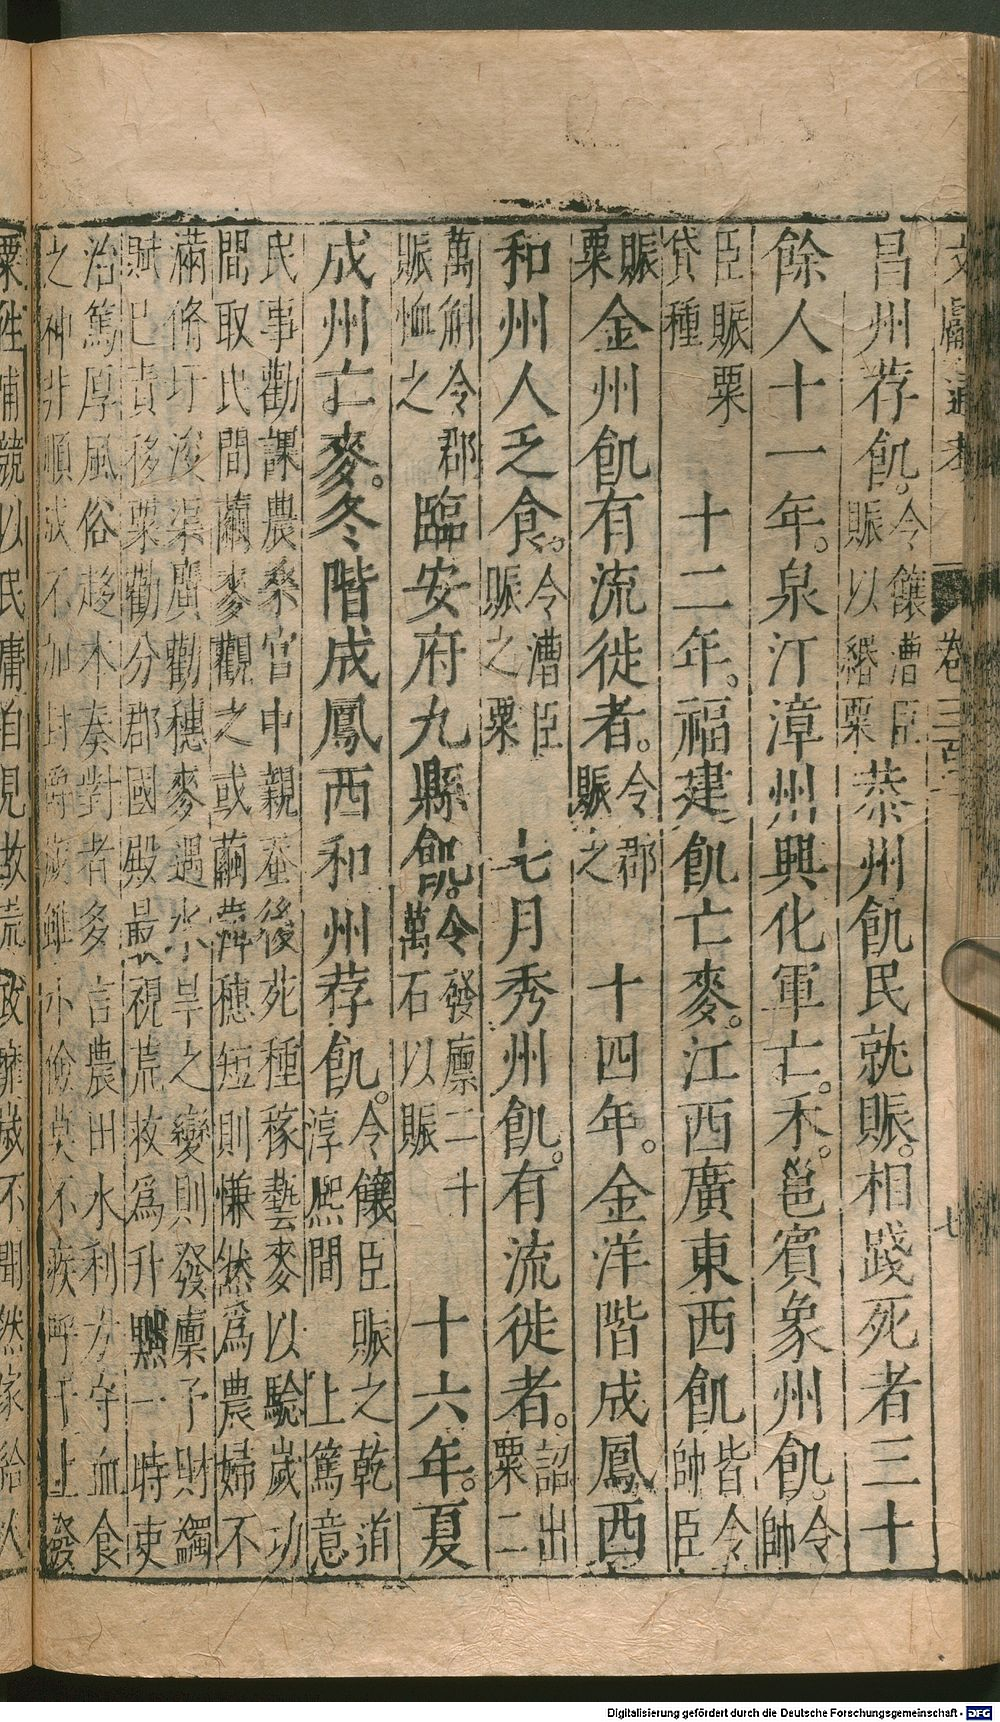 文獻通考 卷三百一 七
昌州荐飢。令饟漕臣賑以緡粟恭州飢民就賑。相踐死者三十
餘人十一年。泉汀漳州興化軍亡。禾。邕賓象州飢。令帥
臣賑粟貸種十二年。福建飢亡麥。江西廣東西飢皆令帥臣
賑粟金州飢有流徙者。令郡賑之十四年。金洋階成鳳西
和州人乏食。令漕臣賑之粟七月秀州飢。有流徙者。詔出粟二
萬斛令郡賑恤之臨安府九縣飢。令發廪二十萬石以賑十六年。夏
成州亡麥。冬階成鳳西和州荐飢。令饟臣賑之乾道淳熙間上篤意
民事勸課農桑宮中親蚕後死種稼藝麥以驗歲功
間取民間繭麥觀之或繭薄穗短則慊然爲農婦不
滿脩圩浚渠廣勸穗麥遇水旱之變則發廪予財蠲
賦已責移粟勸分郡國殿最視荒救爲升黜一時吏
治篤厚風俗趍本奏對者多言農田水利方守血食
之神非順成不加封爵歲雖小儉莫不疾呼于上發
粟往哺兢以民庸自見故荒政歲不聞然家給人
Digitalisierung gefördert durch die Deutsche Forschungsgemeinschaft - DFG